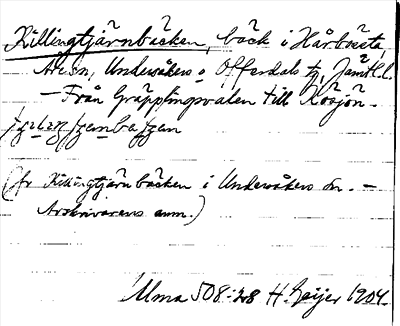 Killingtjärnbäcken, bäck i Hårbörsta,
Åresn, Undersåkers o Offerdals tg, Jämtl. l.
— Från Gräpplingsvalen till Rösjön.
(Jfr Killingtjärnbäcken i Undersåkers sn. —
Arkivarens anm.)
Ulma 508:28 H. Geijer 1904.